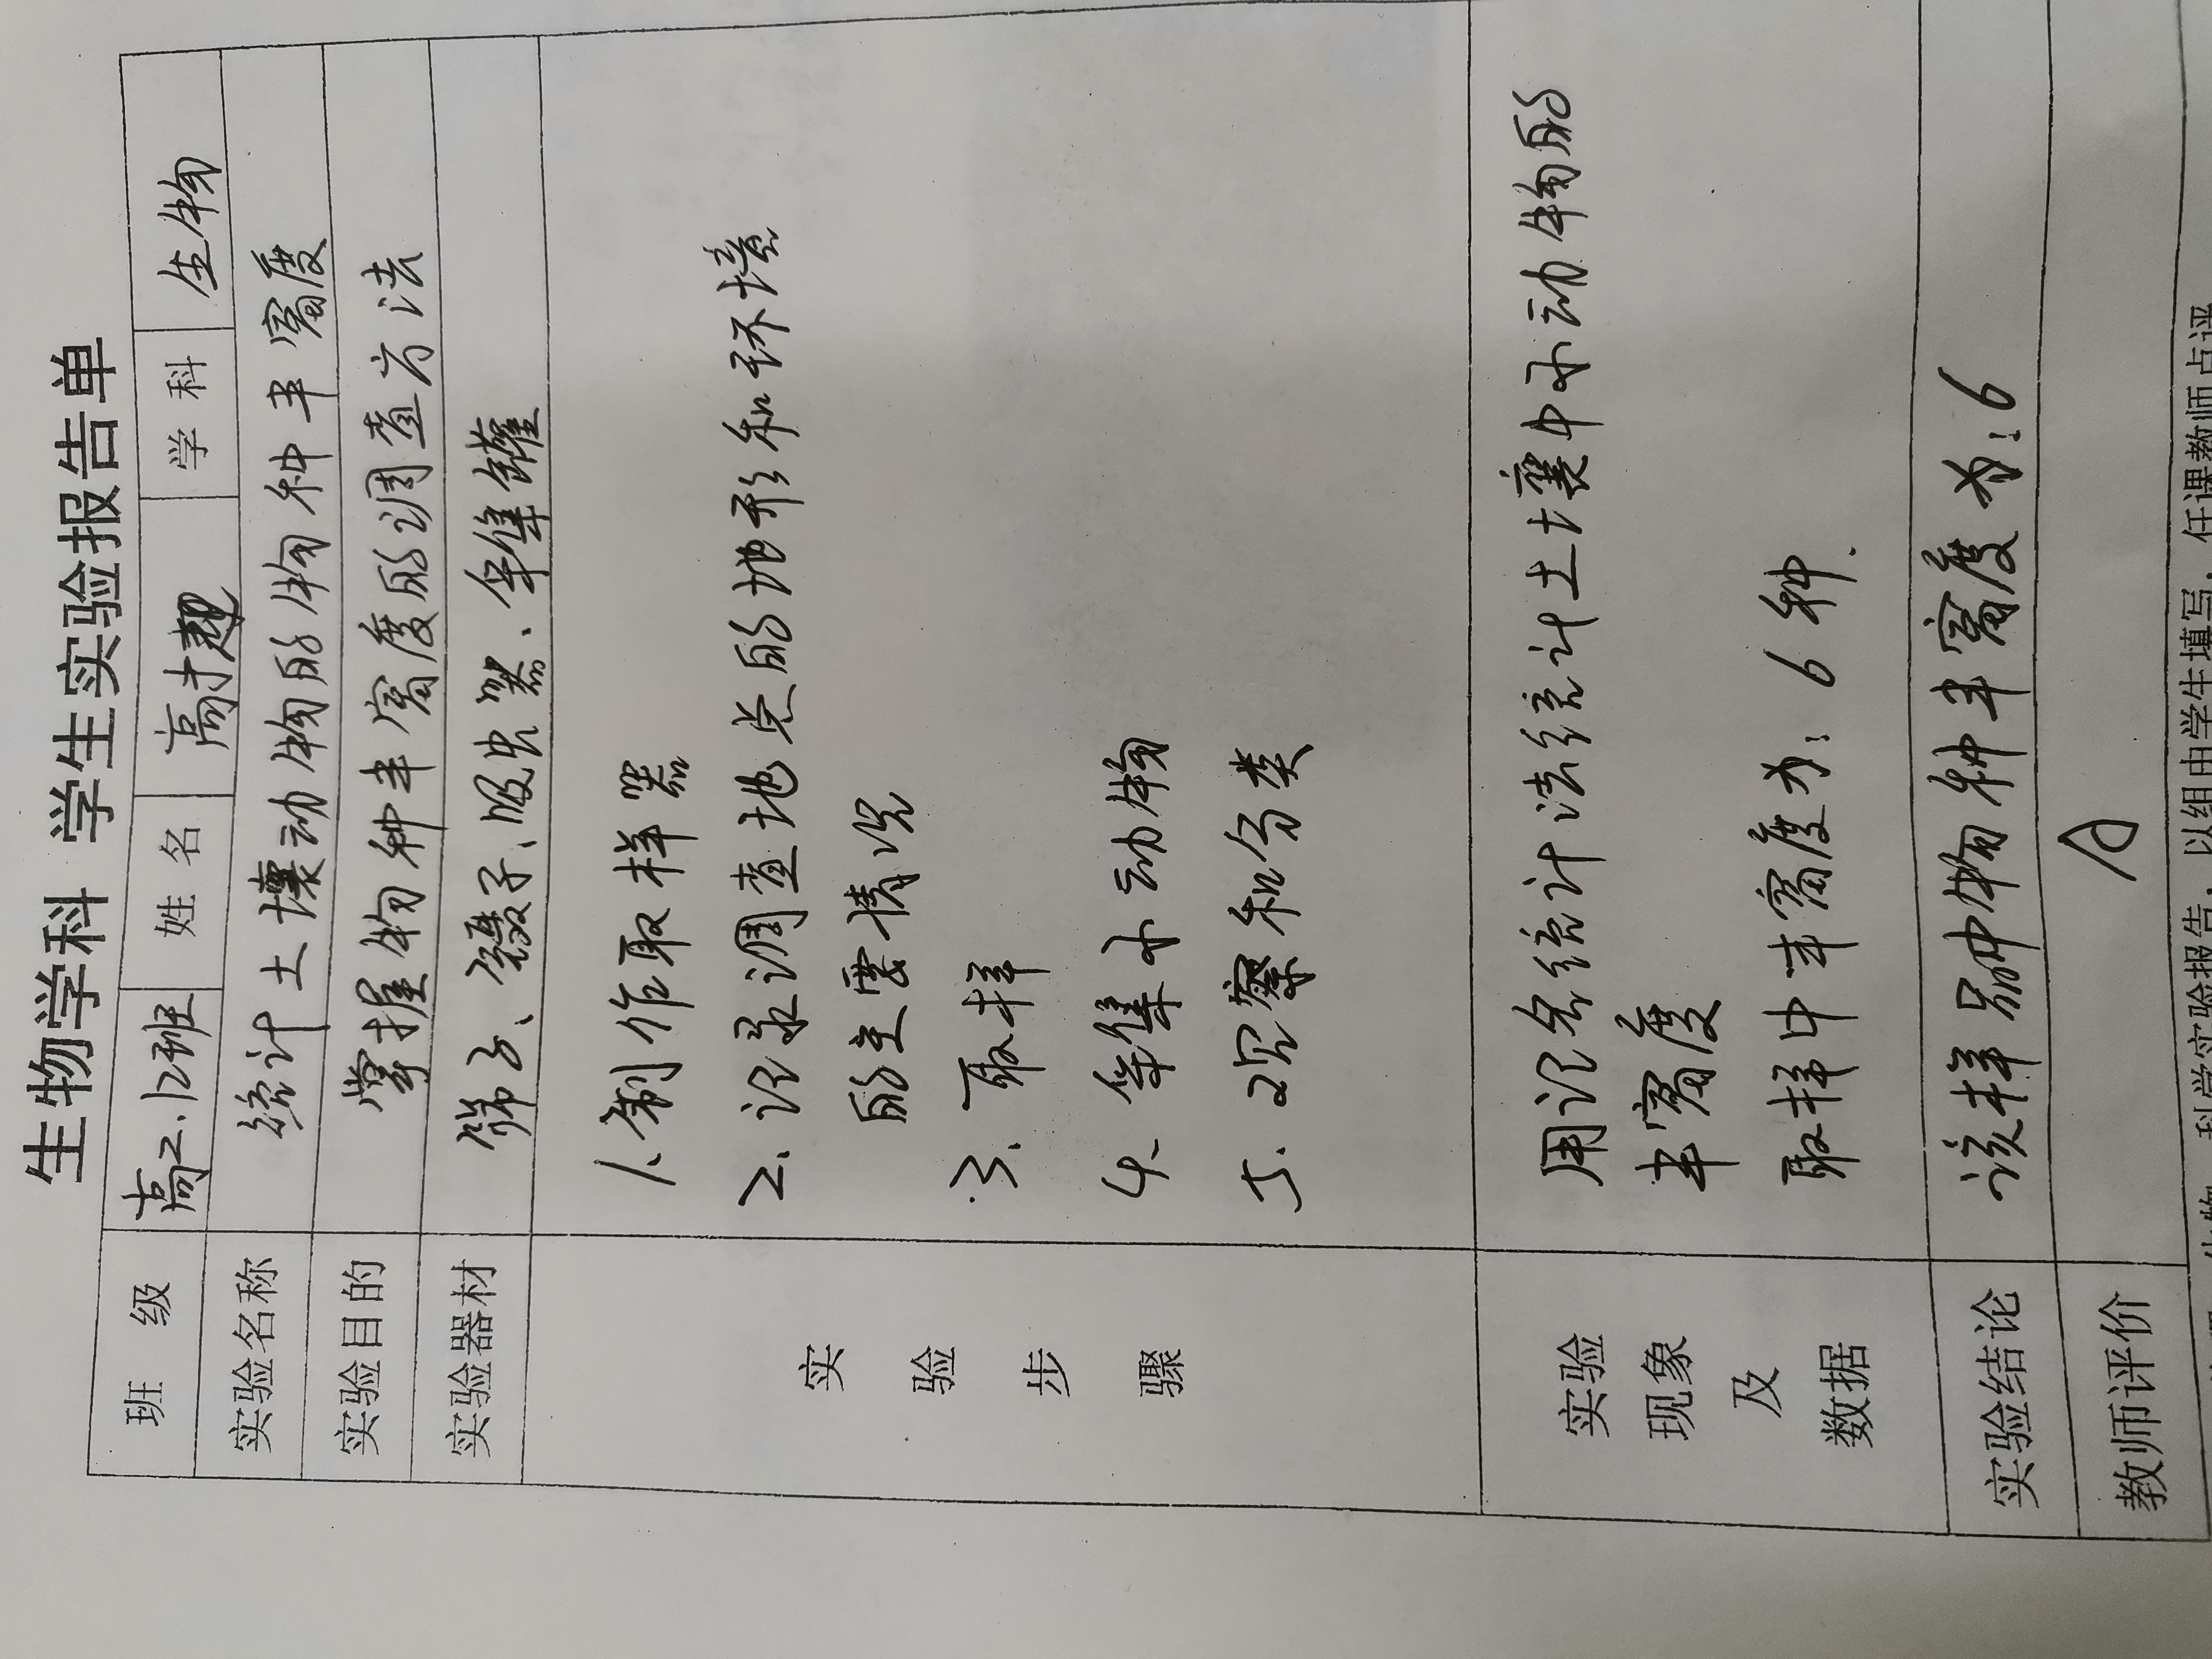 生物学科 学生实验报告单
班 级 高二.12班 姓 名 高才超 学 科 生物
实验名称 统计土壤动物的物种丰富度
实验目的 掌握物种丰富度的调查方法
实验器材 筛子、镊子、吸虫器、采集罐
实验步骤
1.制作取样器
2.记录调查地点的地形和环境
的主要情况
3.取样
4.采集小动物
5.观察和分类
实验现象及数据
用记名统计法统计土壤中小动物的
丰富度
取样中丰富度为:6种.
实验结论 该样品中物种丰富度为:6
教师评价 A
科学实验报告,以组由学生填写,任课教师点评